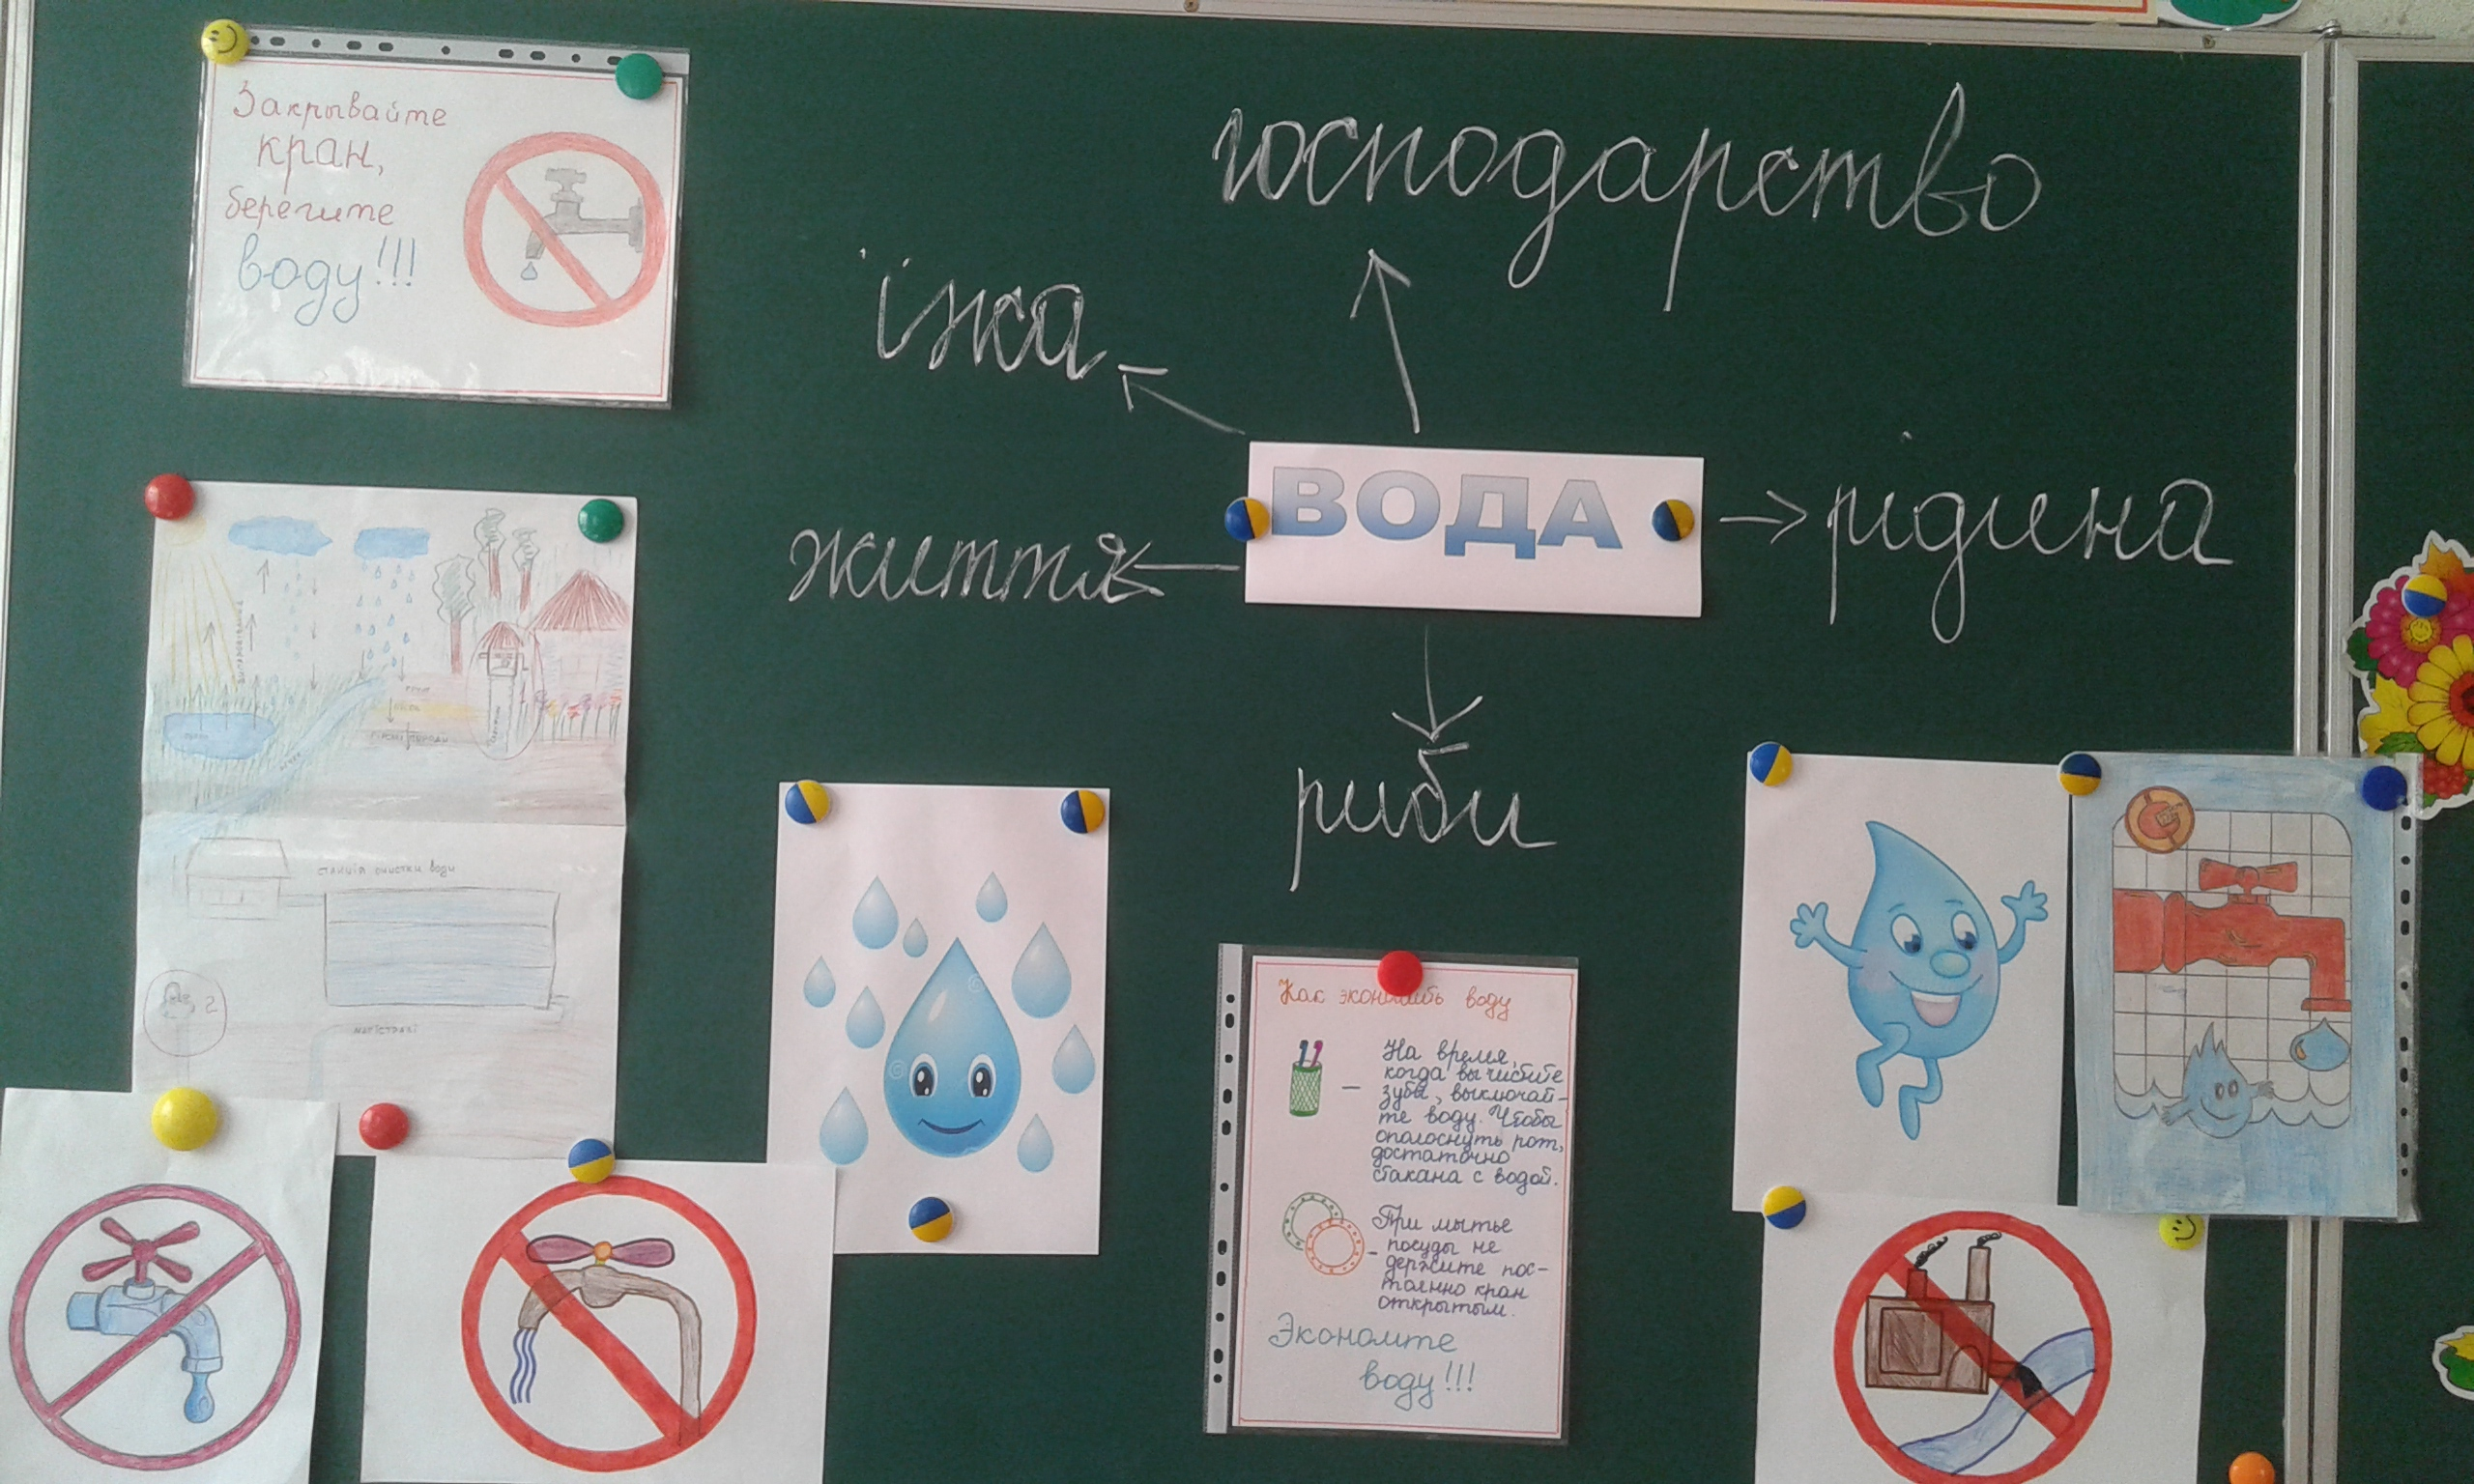 Закрывайте
кран,
берегите
воду!!!
господарство
їжа
ВОДА
рідина
життя
риби
станція очистки води
2
магістралі
Как экономить воду
На время,
когда вы чистите
зубы, выключай-
те воду. Чтобы
ополоснуть рот,
достаточно
стакана с водой.
При мытье
посуды не
держите пос-
тоянно кран
открытым.
Экономте
воду!!!